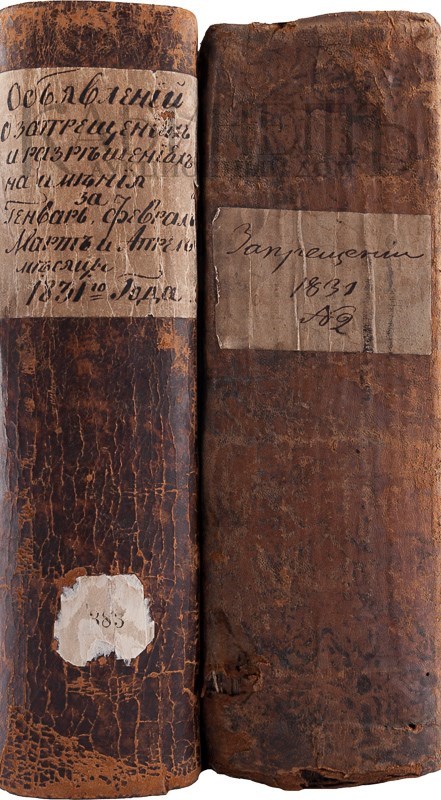 Объявленій
о запрещеніяхъ
и разрѣшеніяхъ
на имѣнія
за
Генварь, Февраль
Мартъ и Апрель
мѣсяцы
1831го Года
383
Запрещеніи
1831
№2